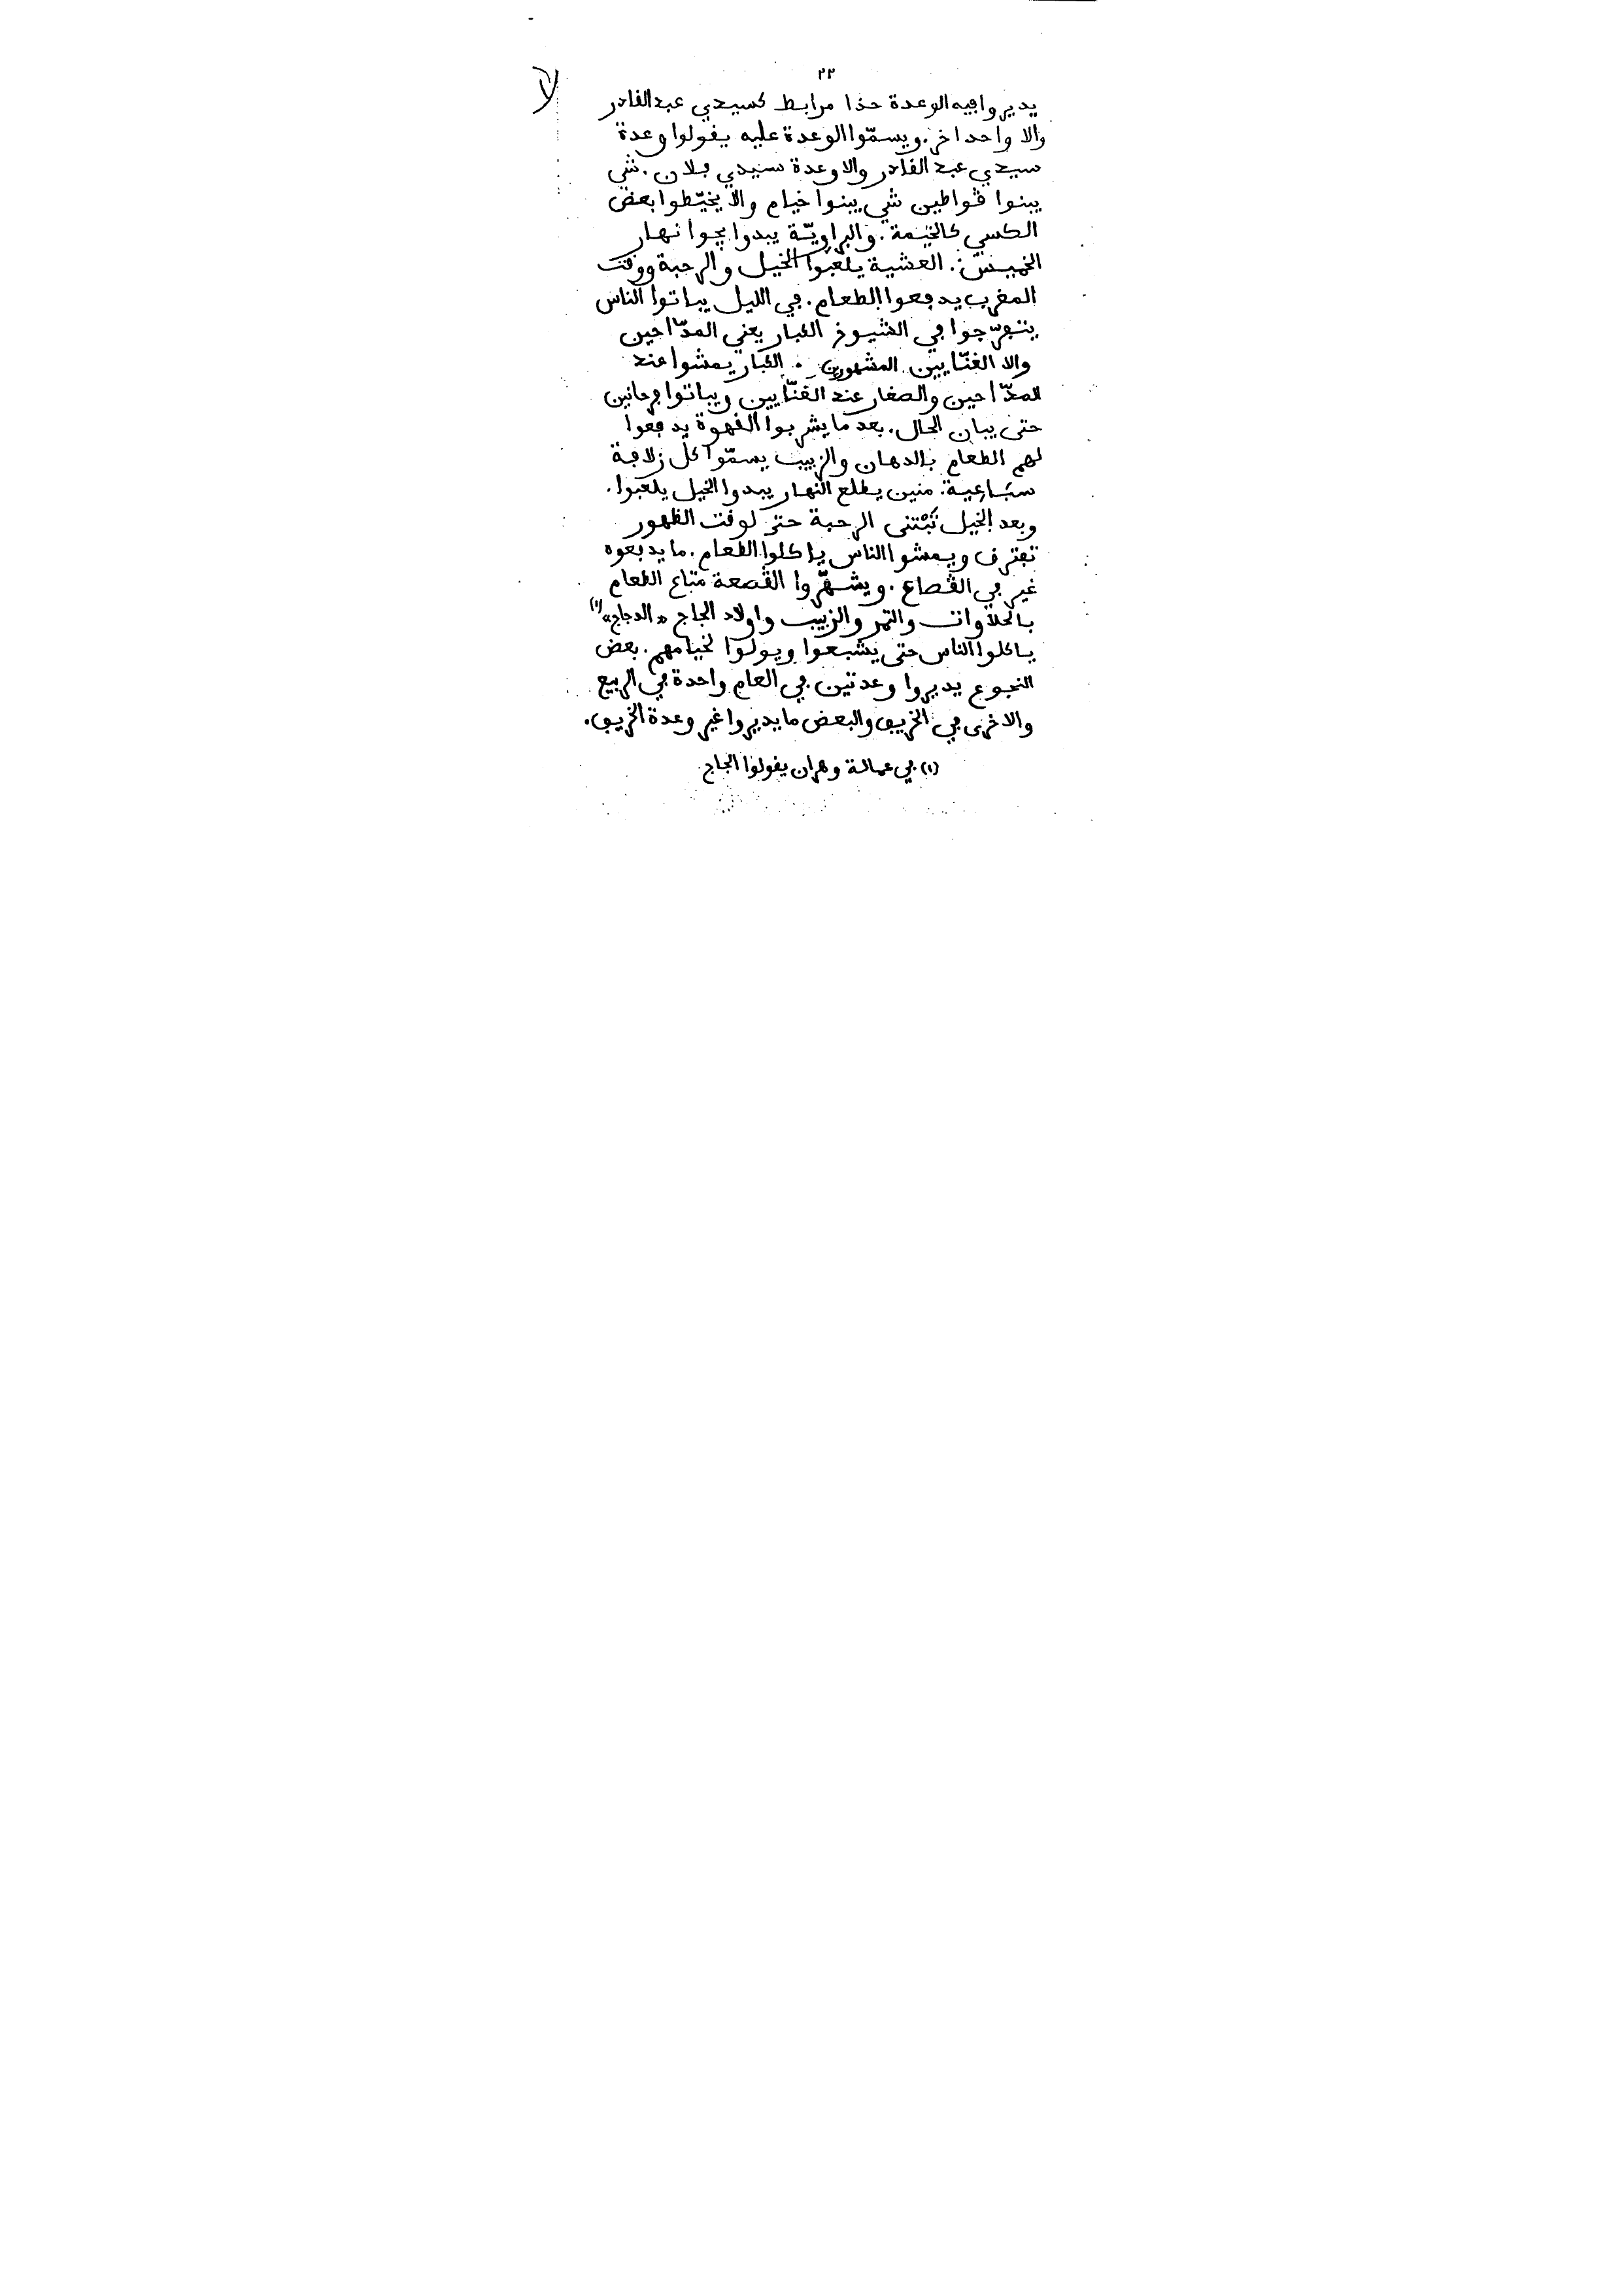 ٢٢
يديروا فيه الوعدة حذا مرابط كسيدي عبد القادر
والا واحد اخر. ويسمّوا الوعدة عليه يقولوا وعدة
سيدي عبد القادر والا وعدة سيدي فلان. شي
يبنوا ڨواطين شي يبنوا خيام والا يخيّطوا بعض
الكسي كالخيمة. والبراويّة يبدوا يجوا نهار
الخميس. العشية يلعبوا الخيل والرحبة ووقت
المغرب يدفعوا الطعام. في الليل يباتوا الناس
يتفرّجوا في الشيوخ الكبار يعني المدّاحين
والا الغنّايين المشهورين. الكبار يمشوا عند
المدّاحين والصغار عند الغنّايين ويباتوا فرحانين
حتى يبان الحال. بعد ما يشربوا القهوة يدفعوا
لهم الطعام بالدهان والزبيب يسمّوا كل زلافة
سفّارعية. منين يطلع النهار يبدوا الخيل يلعبوا.
وبعد الخيل تبتنى الرحبة حتى لوقت الظهور
تفترق ويمشوا الناس ياكلوا الطعام. ما يدفعوه
غير في الڨصاع. ويشهّروا الڨصعة متاع الطعام
بالحلاوات والتمر والزبيب واولاد الجاج «الدجاج»(١)
ياكلوا الناس حتى يشبعوا ويولّوا لخيامهم. بعض
النجوع يديروا وعدتين في العام واحدة في الربيع
والاخرى في الخريف والبعض ما يديروا غير وعدة الخريف.
(١) في عمالة وهران يقولوا الجاج.